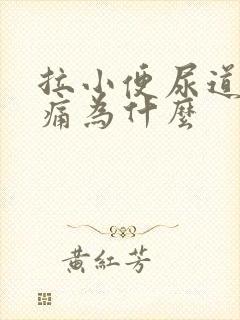 拉小便尿道
痛為什麼
黃紅芳